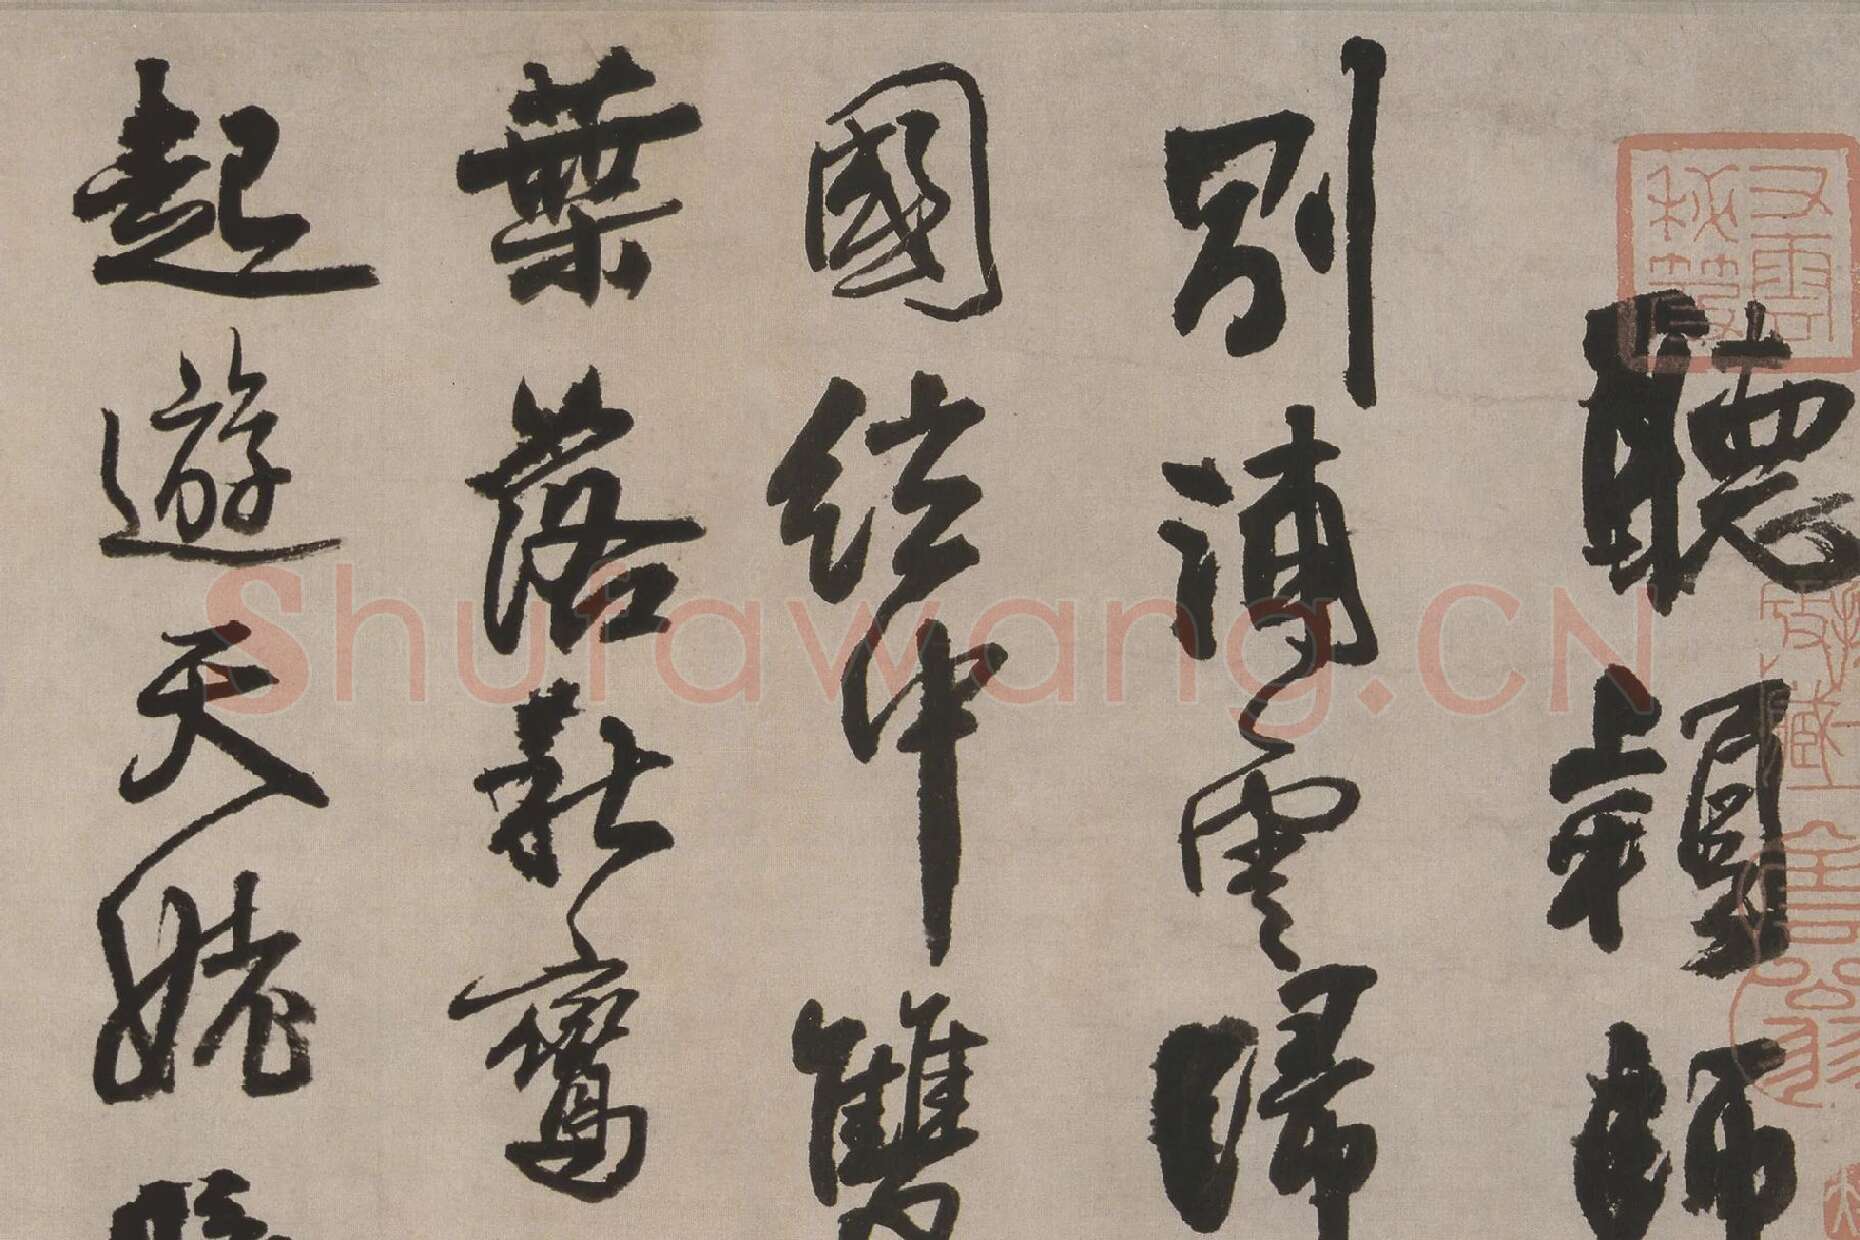 聽穎師
別浦雲歸
國經中雙
葉落秋鸞
起遊天姥
Shufawang.CN